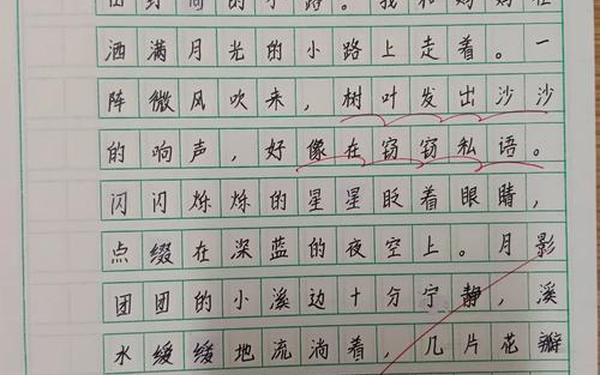 的小路。我和妈妈在
洒满月光的小路上走着。一
阵微风吹来，树叶发出沙沙
的响声，好像在窃窃私语。
闪闪烁烁的星星眨着眼睛，
点缀在深蓝的夜空上。月影
团团的小溪边十分宁静，溪
水缓缓地流淌着，几片花瓣